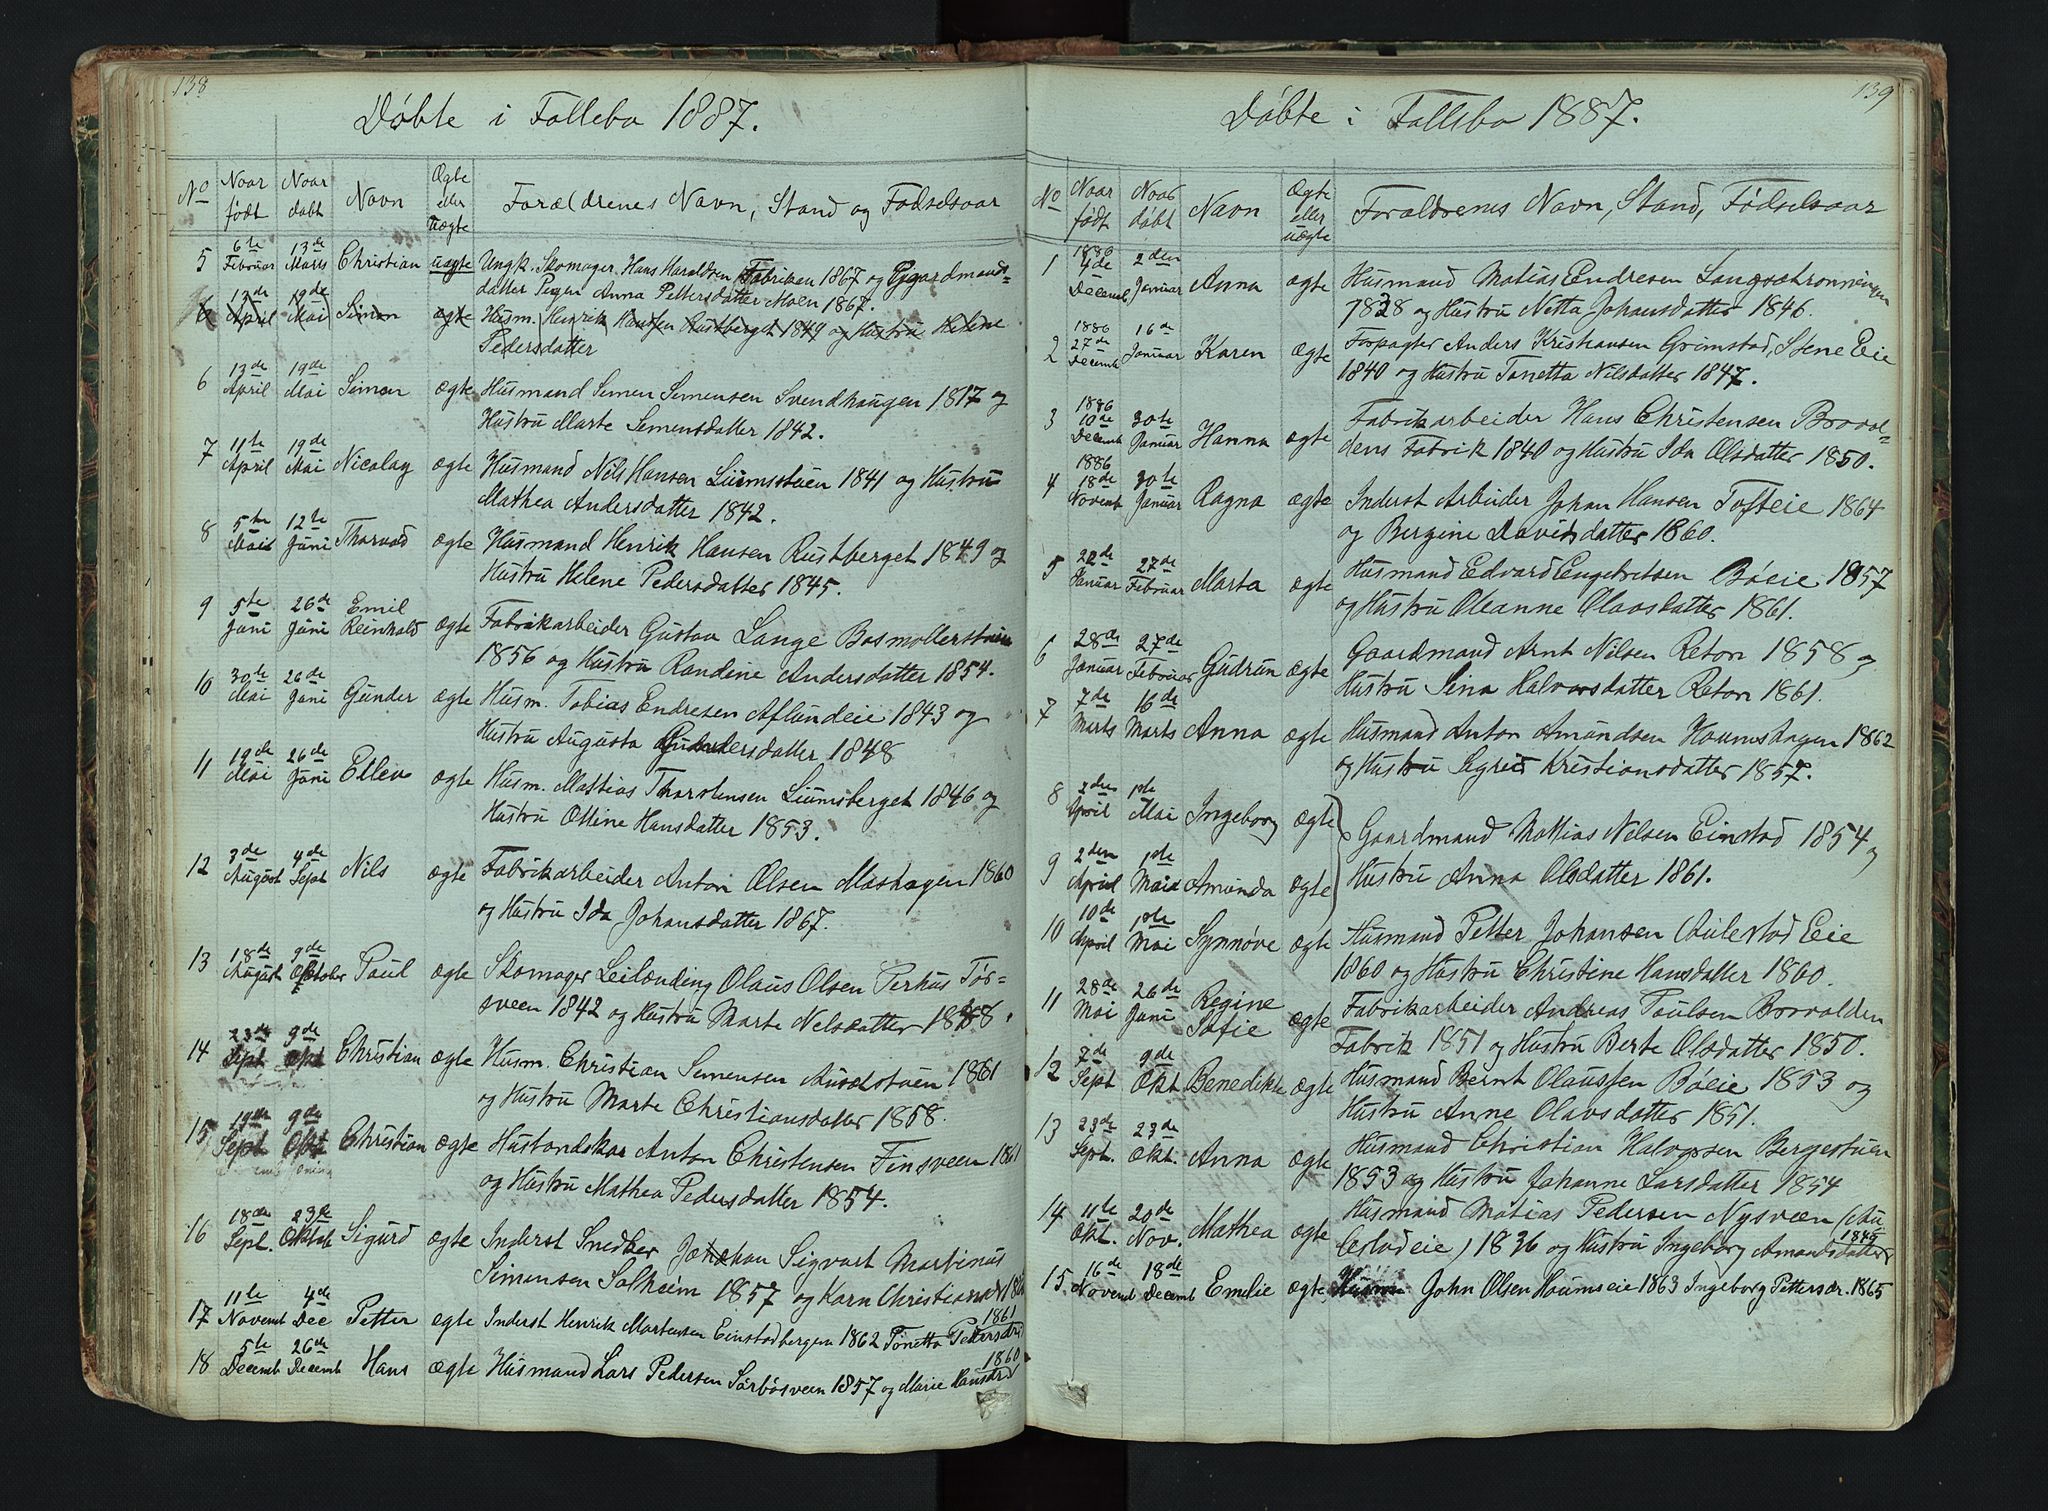 138
Döbte i Follebo 1887.
No Naar født Naar døbt Navn Ægte eller uægte Forældrenes Navn, Stand og Fødselsaar
5 6te Februar 13de Marts Christian uægte Ungk. Skomager Hans Haraldsen Fabriken 1867 og Gaardmands-
datter Pigen Anna Pettersdatter Moen 1867.
6 13de April 19de Mai Simon ægte Husm. Henrik Hansen Rustberget 1849 og Hustru Helene
Pedersdatter
6 13de April 19de Mai Simen ægte Husmand Simen Simensen Svendhaugen 1817 og
Hustru Marte Simensdatter 1842.
7 11te April 19de Mai Nicolay ægte Husmand Nils Hansen Liumsstuen 1841 og Hustru
Mathea Andersdatter 1842.
8 5te Mai 12te Juni Thorvald ægte Husmand Henrik Hansen Rustberget 1849 og
Hustru Helene Pedersdatter 1845.
9 5te Juni 26de Juni Emil Reinhold ægte Fabrikarbeider Gustav Lange Bosmollerstuen
1856 og Hustru Randine Andersdatter 1854.
10 30te Mai 26de Juni Gunder ægte Husm. Tobias Endresen Aflundeie 1843 og
Hustru Augusta Gundersdatter 1848
11 19de Mai 26de Juni Ellev ægte Husm. Mattias Thorstensen Liumsberget 1846 og
Hustru Olline Hansdatter 1853.
12 3de August 4de Sept Nils ægte Fabrikarbeider Anton Olsen Moshagen 1860
og Hustru Ida Johansdatter 1867.
13 18de August 9de Oktober Paul ægte Skomager Leilænding Olaus Olsen Perhus Tør-
sveen 1842 og Hustru Marte Nilsdatter 1858.
14 23de Sept 9de Okt Christian ægte Husm. Christian Simensen 1861
og Hustru Marte Christiansdatter 1858.
15 19de Sept 9de Okt Christian ægte Hustandskar Anton Christensen Finsveen 1861
og Hustru Mathea Pedersdatter 1854.
16 18de Sept. 23de Oktob Sigurd ægte Inderst Snedker Johan Sigvart Martinus
Simensen Solheim 1857 og Karn Christiansd
17 11te Novemb 4de Dec Petter ægte Inderst Henrik Martinsen Einstadbergen 1862 Tonetta Pedersdtr 1861
18 5te Decemb 26de Decemb Hans ægte Husmand Lars Pedersen Sørbøsveen 1857 og Marie Hansdtr 1860
139
Döbte i Follebo 1887.
No Naar født Naar døbt Navn Ægte eller uægte Forældrenes Navn, Stand, Fødselsaar
1 1886 4de Decemb. 2den Januar Anna ægte Husmand Matias Endresen Langsetrønningen
1838 og Hustru Netta Johansdatter 1846.
2 1886 27de Decemb 16de Januar Karen ægte Forpagter Anders Kristiansen Grimstad, Stene Eie
1840 og Hustru Tonetta Nilsdatter 1847.
3 1886 10de Decemb 30te Januar Hanna ægte Fabrikarbeider Hans Christensen Brovol-
dens Fabrik 1840 og Hustru Ida Olsdatter 1850.
4 1886 18de Novemb 30te Januar Ragna ægte Inderst Arbeider Johan Hansen Tofteie 1864
og Bergine Davidsdatter 1860.
5 22de Januar 27de Februar Marta ægte Husmand Edvard Engebretsen Bøeie 1857
og Hustru Oleanne Olavsdatter 1861.
6 28de Januar 27de Februar Gudrun ægte Gaardmand Arnt Nilsen Reton 1858 og
Hustru Sina Halvorsdatter Reton 1861.
7 7de Marts 16de Marts Anna ægte Husmand Anton Amundsen Houmshagen 1862
og Hustru Sigrid Kristiansdatter 1857.
8 2den April 1ste Mai Ingeborg ægte Gaardmand Mattias Nilsen Einstad 1854 og
9 2den April 1ste Mai Amunda ægte Hustru Anna Olsdatter 1861.
10 10de April 1ste Mai Synnøve ægte Husmand Petter Johansen Aulestad Eie
1860 og Hustru Christine Hansdatter 1860.
11 28de Mai 26de Juni Regine Sofie ægte Fabrikarbeider Andreas Poulsen Brovolden
Fabrik 1851 og Hustru Berte Olsdatter 1850.
12 7de Sept 9de Okt Benedikte ægte Husmand Bernt Olaussen Bøeie 1853 og
Hustru Anne Olavsdatter 1851.
13 23de Sept. 23de Okt. Anna ægte Husmand Christian Halvorsen Bergestuen
1853 og Hustru Johanne Larsdatter 1854
14 11te Okt. 20de Nov. Mathea ægte Husmand Matias Pedersen Nysveen (Au
lestadeie) 1836 og Hustru Ingeborg Amundsdatter 1845
15. 16de Novemb 18de Decemb Emilie ægte Husm John Olsen Houmseie 1863 Ingeborg Pettersdr. 1865